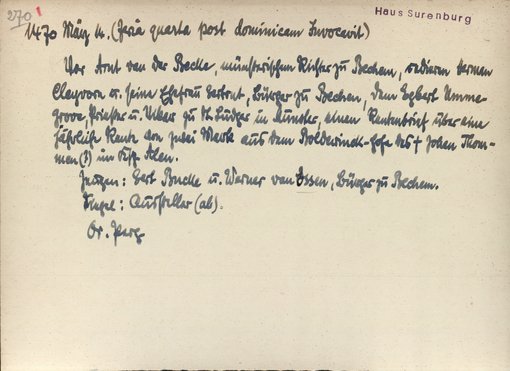 270
Haus Surenburg
1470 März 14. (feria quarta post dominicam Invocavit)
Vor Arnt van der Becke, münsterischen Richter zu Bechem, cedieren Herman
Cleyvorn u. seine Ehefrau Gertrut, Bürger zu Bechem, dem Egbert Umme-
grove, Priester u. Vikar zu St. Ludger in Münster, einen Rentenbrief über eine
jährliche Rente von zwei Mark aus dem Rolderinck-Hofe des † Johan Thon-
man (?) im Kspl. Alen.
Zeugen: Gert Bucke u. Werner van Essen, Bürger zu Bechem.
Siegel: Aussteller (ab).
Or. Perg.